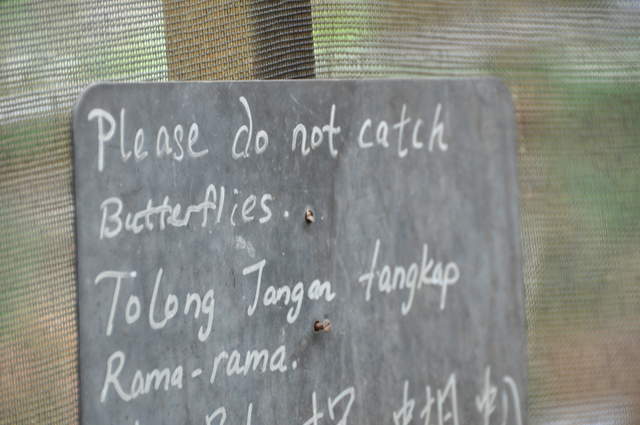 Please do not catch
Butterflies.
Tolong Jangan tangkap
Rama-rama.